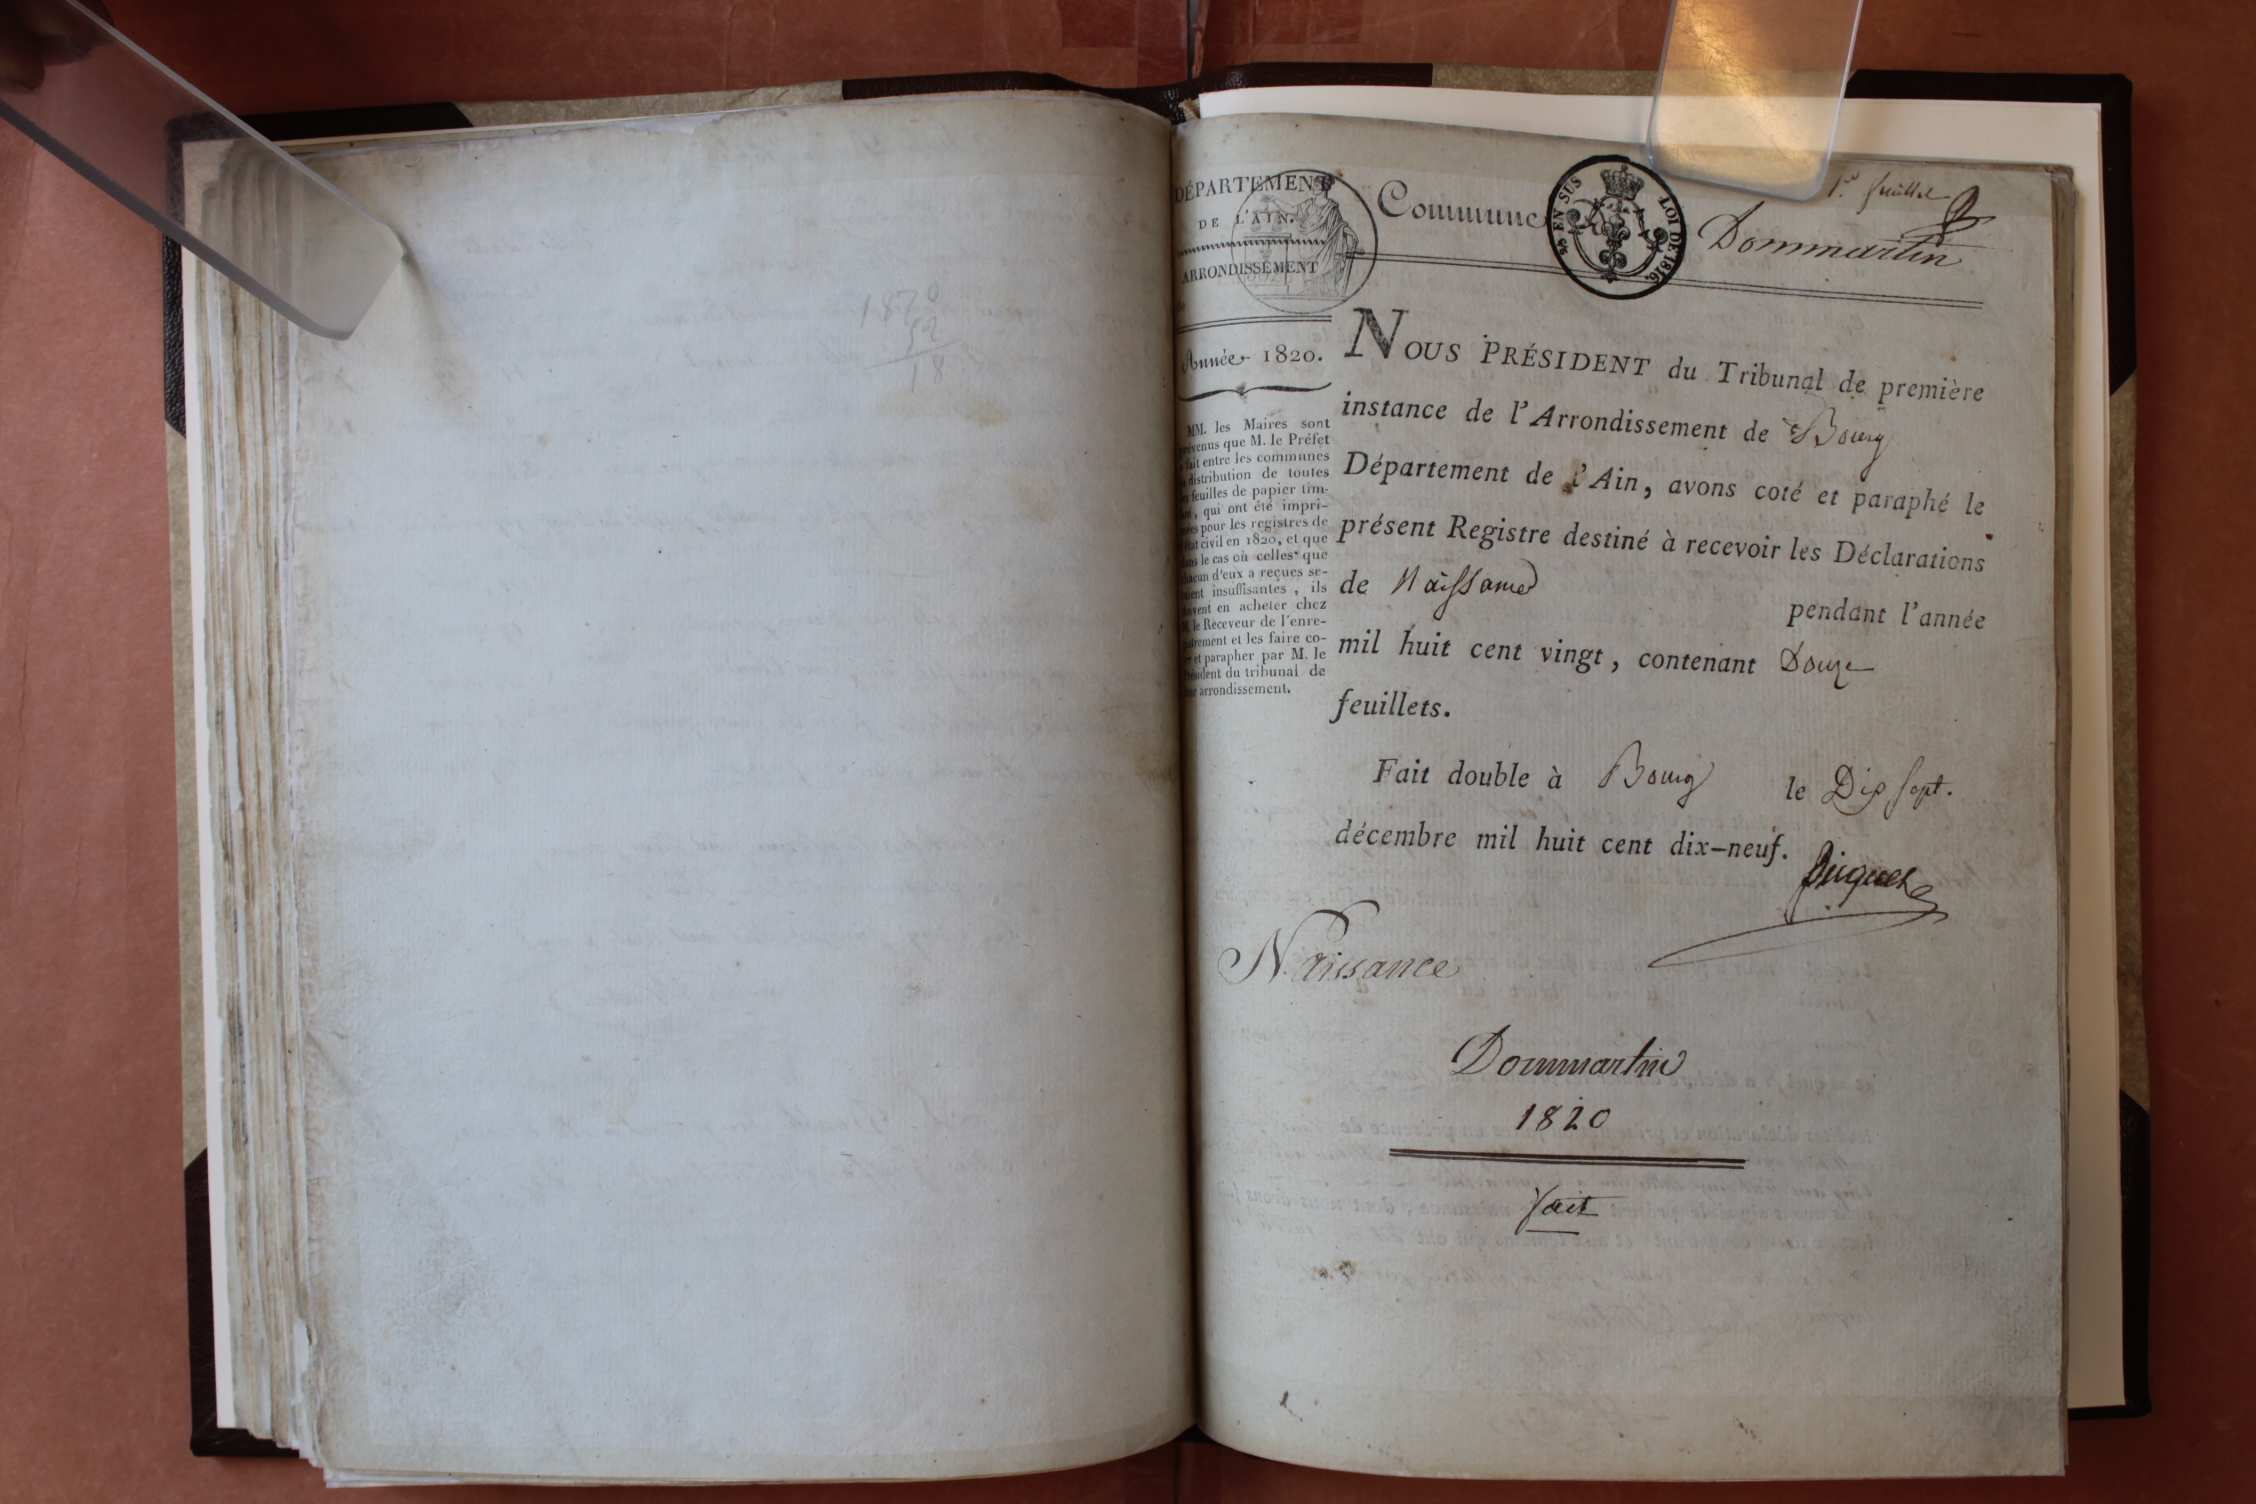 1870
52
18
1.er feuillet
DÉPARTEMENT
DE L'AIN.
ARRONDISSEMENT
Année 1820.
MM. les Maires sont
prévenus que M. le Préfet
fait entre les communes
distribution de toutes
feuilles de papier tim-
qui ont été impri-
pour les registres de
civil en 1820, et que
le cas où celles que
d'eux a reçues se-
insuffisantes, ils
en acheter chez
le Receveur de l'enre-
et les faire co-
et parapher par M. le
du tribunal de
arrondissement.
Commune
25 EN SUS
LOI DE 1816.
Dommartin
NOUS PRÉSIDENT du Tribunal de première
instance de l'Arrondissement de Bourg
Département de l'Ain, avons coté et paraphé le
présent Registre destiné à recevoir les Déclarations
de Naissance
pendant l'année
mil huit cent vingt, contenant Douze
feuillets.
Fait double à Bourg le Dix sept.
décembre mil huit cent dix-neuf.
Naissance
Dommartin
1820
fait